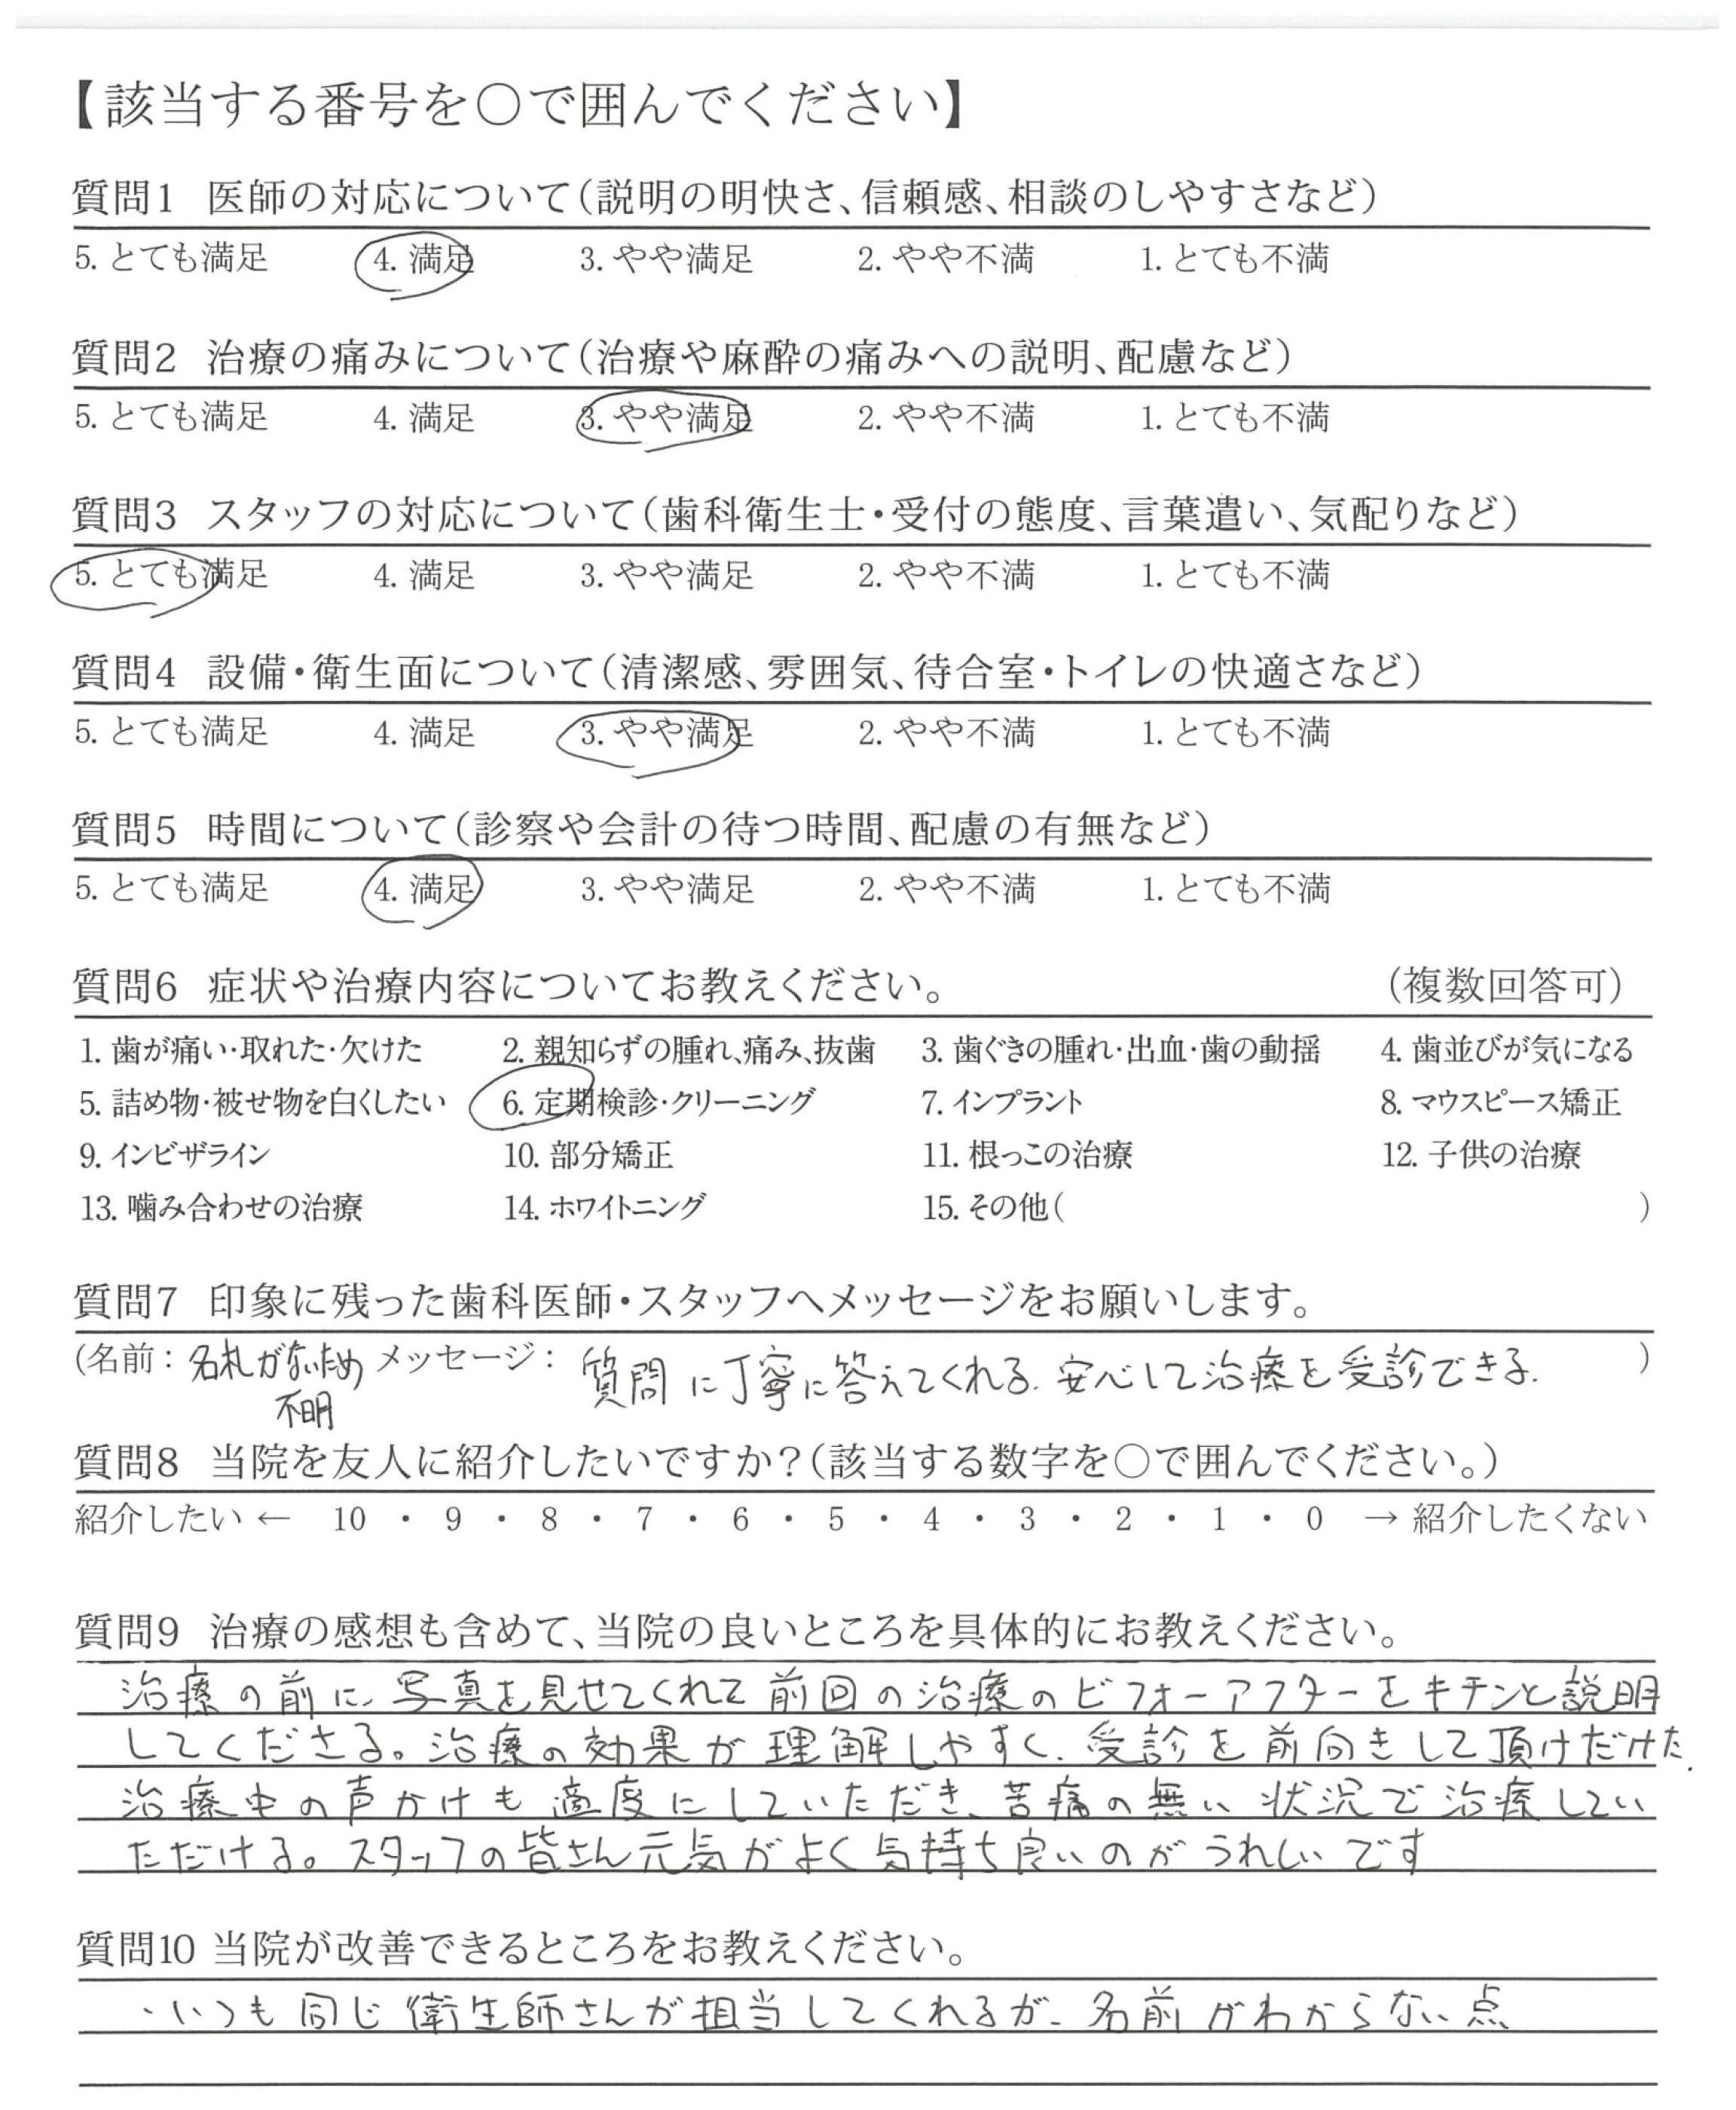 【該当する番号を○で囲んでください】
質問1 医師の対応について(説明の明快さ、信頼感、相談のしやすさなど)
5. とても満足 4. 満足 3. やや満足 2. やや不満 1. とても不満
質問2 治療の痛みについて(治療や麻酔の痛みへの説明、配慮など)
5. とても満足 4. 満足 3. やや満足 2. やや不満 1. とても不満
質問3 スタッフの対応について(歯科衛生士・受付の態度、言葉遣い、気配りなど)
5. とても満足 4. 満足 3. やや満足 2. やや不満 1. とても不満
質問4 設備・衛生面について(清潔感、雰囲気、待合室・トイレの快適さなど)
5. とても満足 4. 満足 3. やや満足 2. やや不満 1. とても不満
質問5 時間について(診察や会計の待つ時間、配慮の有無など)
5. とても満足 4. 満足 3. やや満足 2. やや不満 1. とても不満
質問6 症状や治療内容についてお教えください。 (複数回答可)
1. 歯が痛い・取れた・欠けた 2. 親知らずの腫れ、痛み、抜歯 3. 歯ぐきの腫れ・出血・歯の動揺 4. 歯並びが気になる
5. 詰め物・被せ物を白くしたい 6. 定期検診・クリーニング 7. インプラント 8. マウスピース矯正
9. インビザライン 10. 部分矯正 11. 根っこの治療 12. 子供の治療
13. 噛み合わせの治療 14. ホワイトニング 15. その他( )
質問7 印象に残った歯科医師・スタッフへメッセージをお願いします。
(名前: 名札がないため メッセージ: 質問に丁寧に答えてくれる. 安心して治療を受診できる. )
不明
質問8 当院を友人に紹介したいですか?(該当する数字を○で囲んでください。)
紹介したい ← 10 ・ 9 ・ 8 ・ 7 ・ 6 ・ 5 ・ 4 ・ 3 ・ 2 ・ 1 ・ 0 → 紹介したくない
質問9 治療の感想も含めて、当院の良いところを具体的にお教えください。
治療の前に、写真を見せてくれて前回の治療のビフォーアフターをキチンと説明
してくださる。治療の効果が理解しやすく、受診を前向きして頂けだけた.
治療中の声かけも適度にしていただき、苦痛の無い状況で治療してい
ただける。スタッフの皆さん元気がよく気持ち良いのがうれしいです
質問10 当院が改善できるところをお教えください。
・いつも同じ衛生師さんが担当してくれるが、名前がわからない点